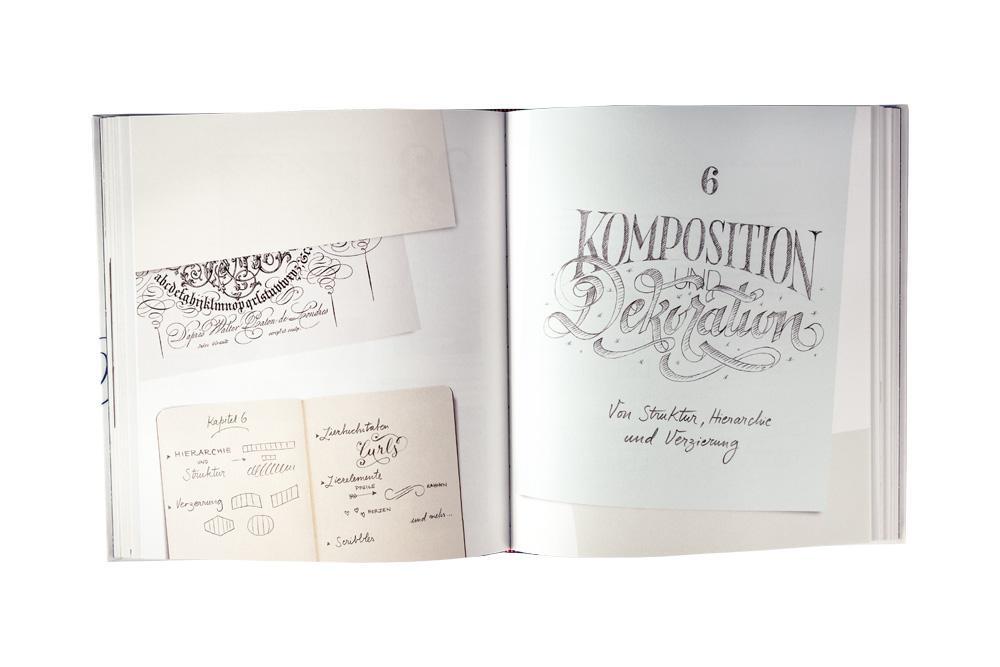 abcdefghijklmnopqrstuvwxyz
Daprès Walter Paton de Londres
Kapitel 6
HIERARCHIE
UND
Struktur
Verzerrung
Zierbuchstaben
Curls
Zierelemente
PFEILE
RAHMEN
HERZEN
und mehr...
Scribbles
6
KOMPOSITION
UND
Dekoration
Von Struktur, Hierarchie
und Verzierung